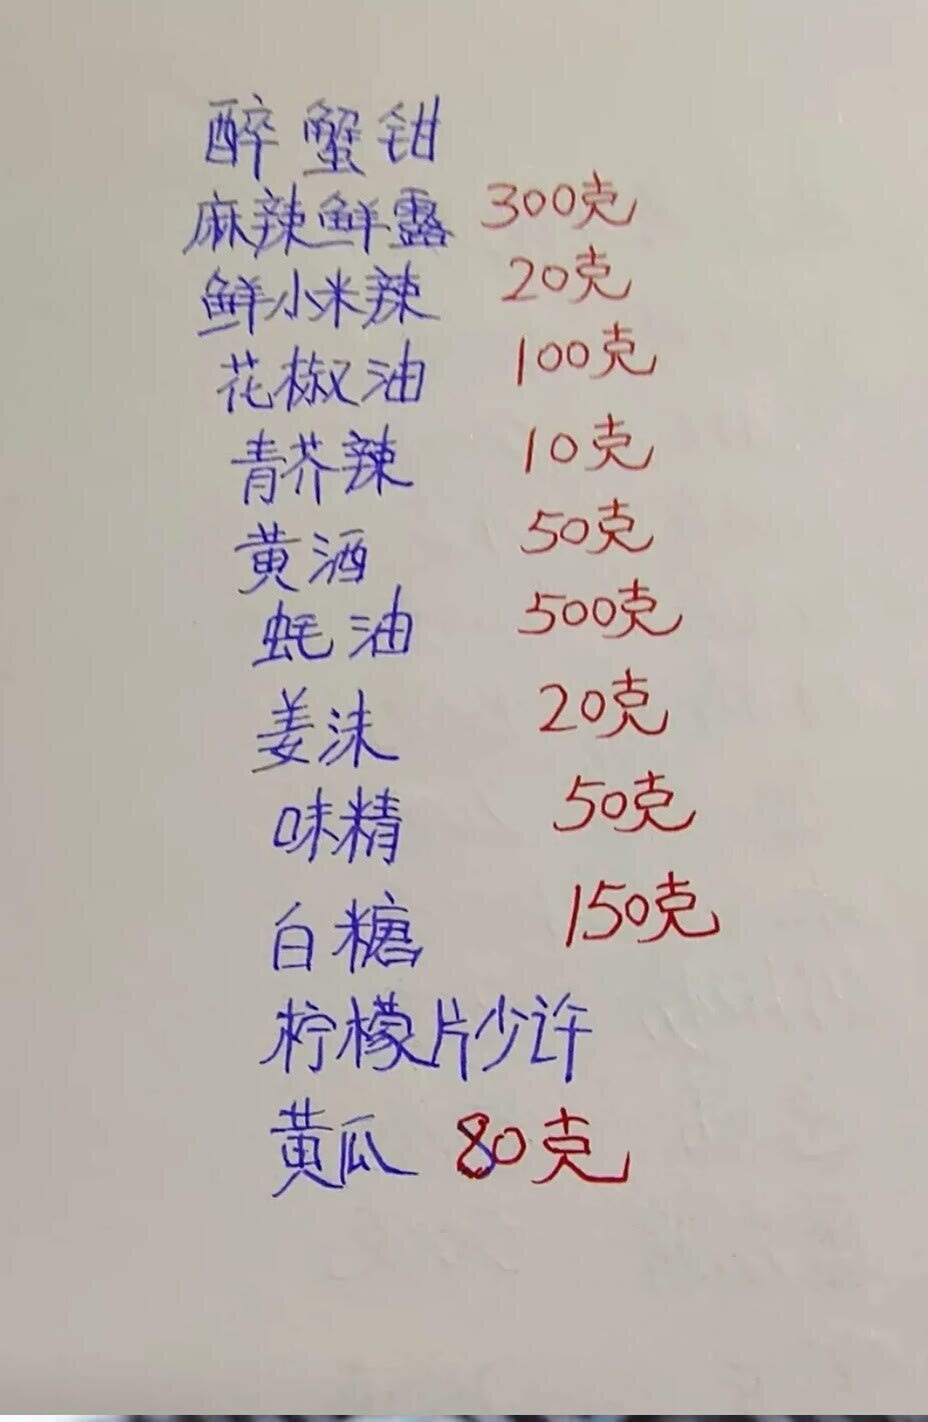 醉蟹钳
麻辣鲜露 300克
鲜小米辣 20克
花椒油 100克
青芥辣 10克
黄酒 50克
蚝油 500克
姜沫 20克
味精 50克
白糖 150克
柠檬片少许
黄瓜 80克